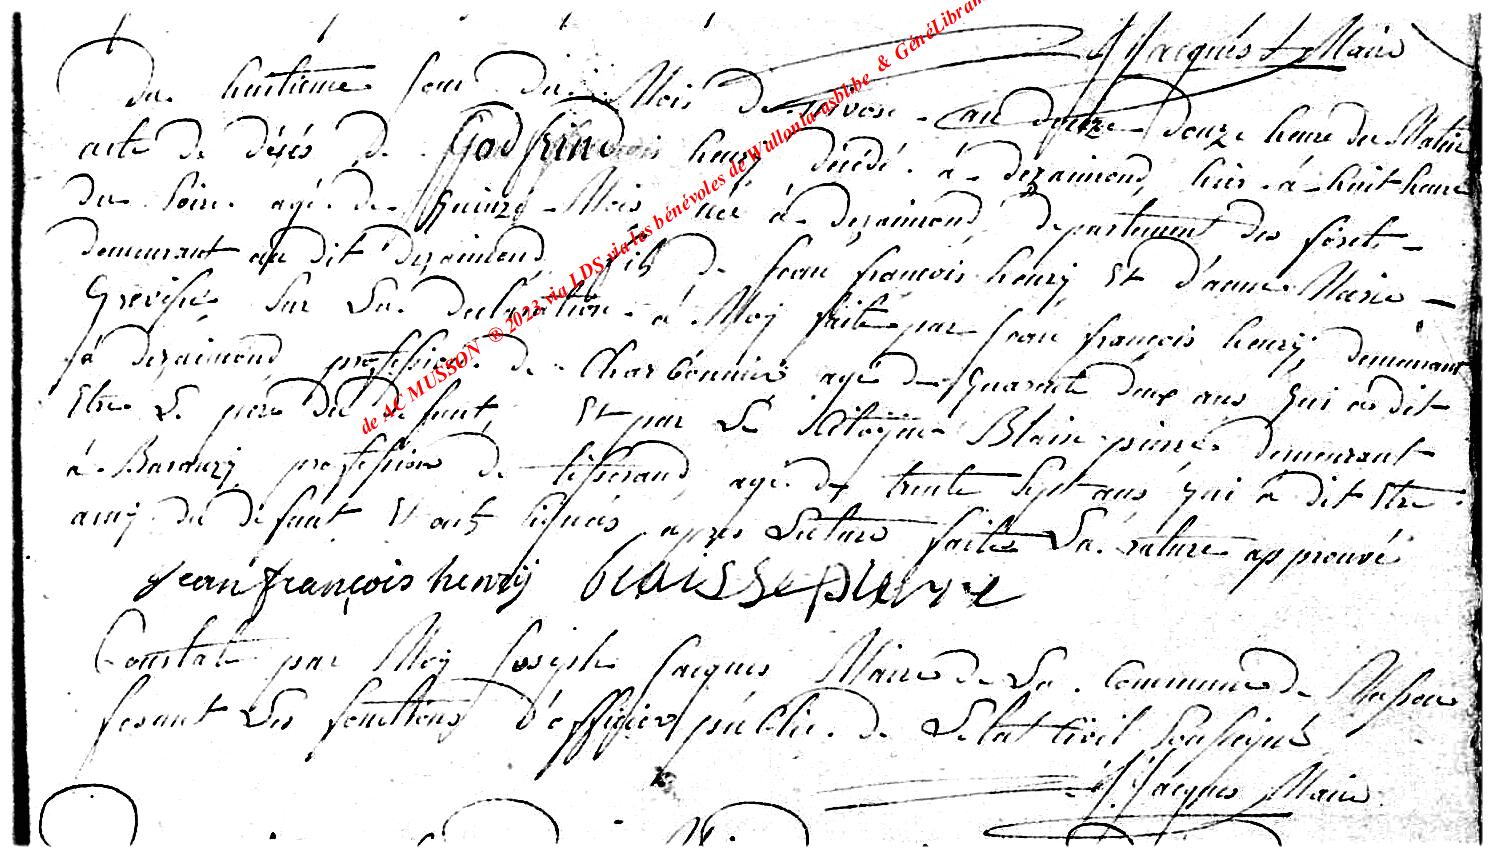 J Jacques Maire
Du huitieme jour du Mois de nivose an douze douze heure du Matin
acte de désés de Godfrin henry décédé à dezaimond, hier à huit heure
du Soire agé de quinze Mois, né à dezaimond, departement des forets
demeurant au dit dezaimond, fils de jean françois henry Et d'anne Marie
Grevisse Sur La declaration à Moy faite par jean françois henry, demeurant
à dezaimond, profession de Charbonnier agé de quarante deux ans qui a dit
Etre Le pere du défunt, Et par Le Citoÿen Blaise pierre demeurant
à Baranzy profession de tisserand, agé de trente Sept ans, qui a dit Etre
amy du défunt Et onts signés apres Lecture faite La rature approuvé
jean françois henrÿ blaisse pierre
Constaté par Moy Joseph Jacques Maire de La Commune de Musson
fesant Les fonctions d'officier public de L'etat Civil Soussigné
J. Jacques Maire
de AC MUSSON ® 2023 via LDS via les bénévoles de Wallonia-asbl.be & GénéLibran